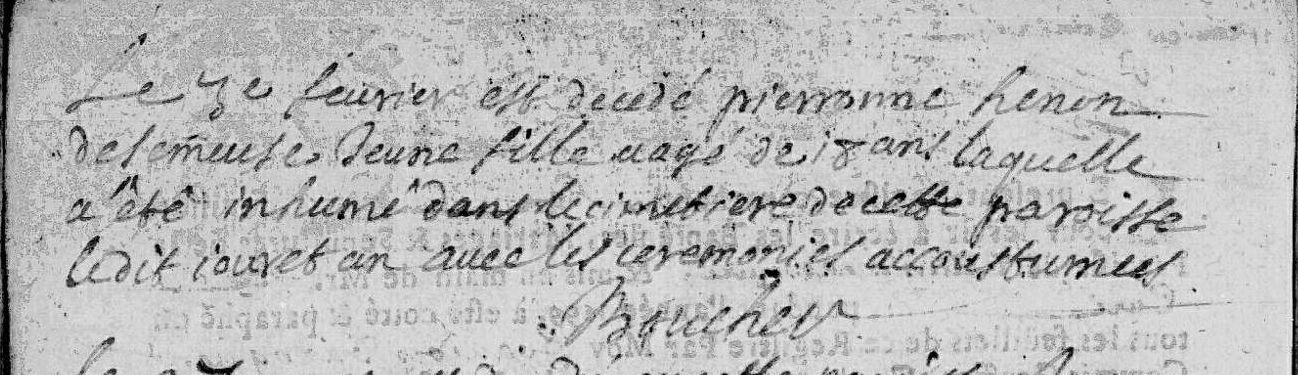 Le 3e feurier est decedé pierronne henon
de semeuse Jeune fille aagé de 18 ans laquelle
a été inhumé dans le cimetiere de cette paroisse
ledit iour et an auec les ceremonies accoustumees
Boucher